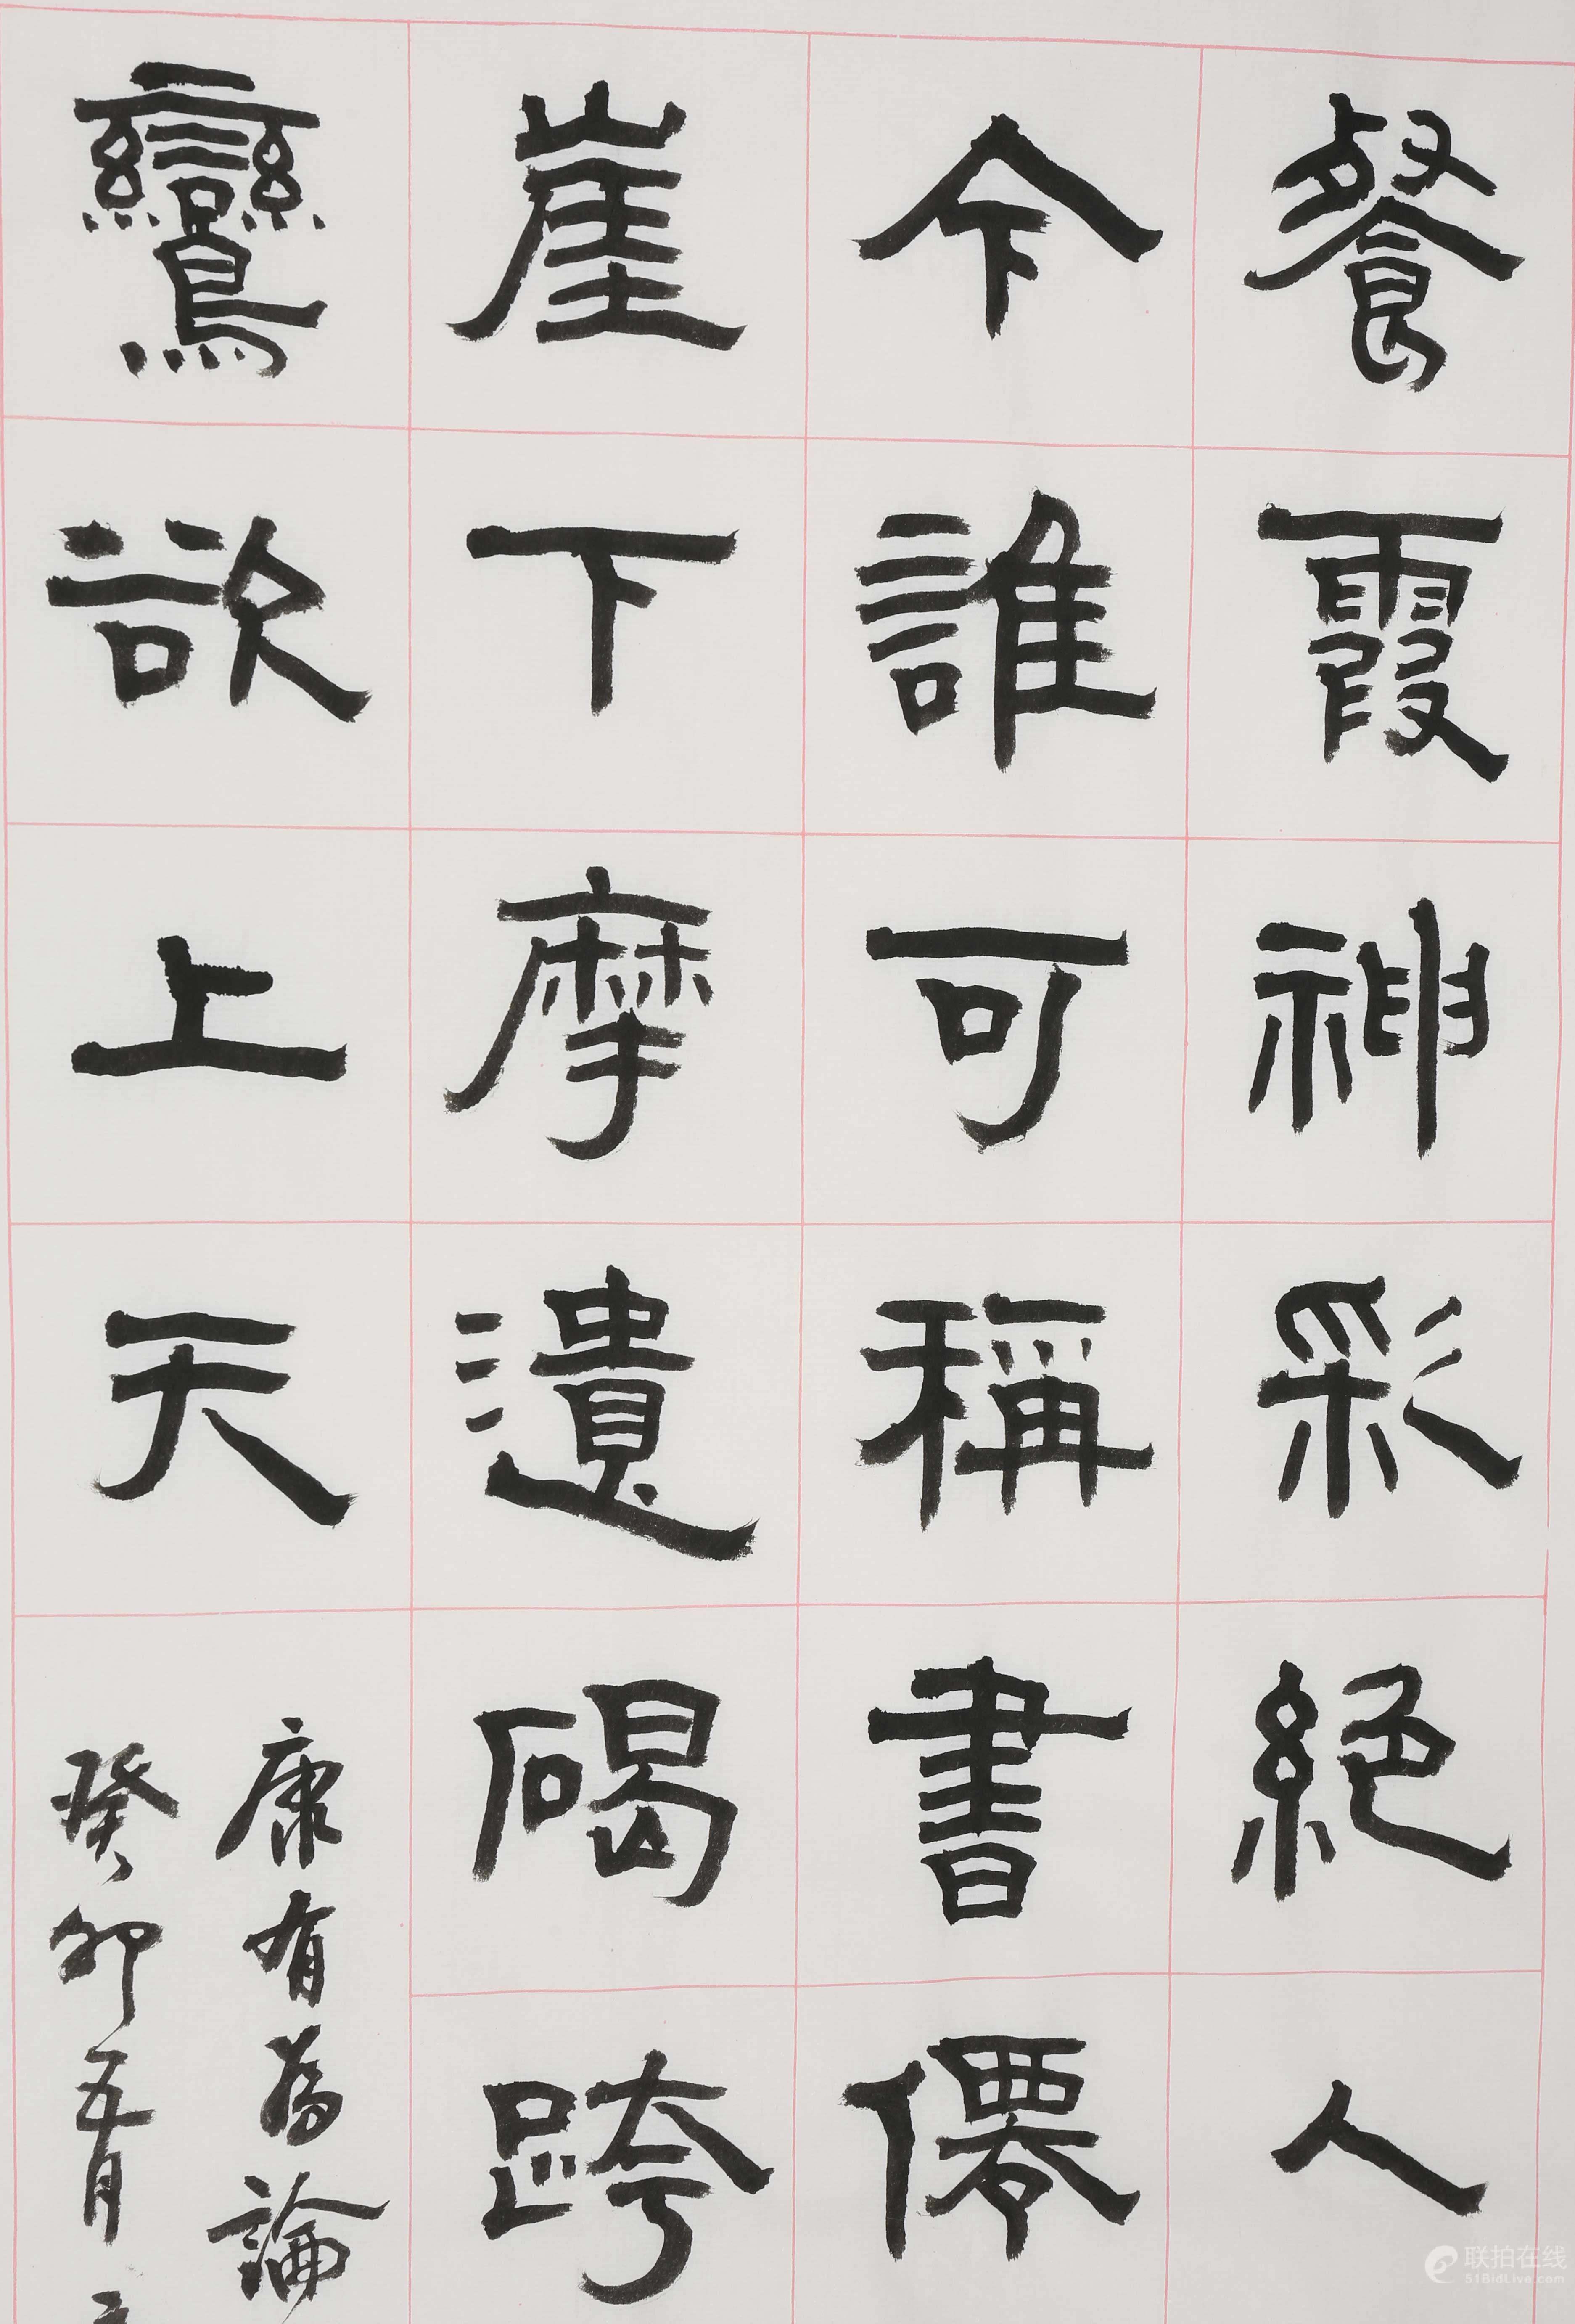 餐霞神彩絕人
今誰可稱書僊
崖下摩遺碣跨
鸞欲上天
康有為論
癸卯五月
联拍在线
51BidLive.com